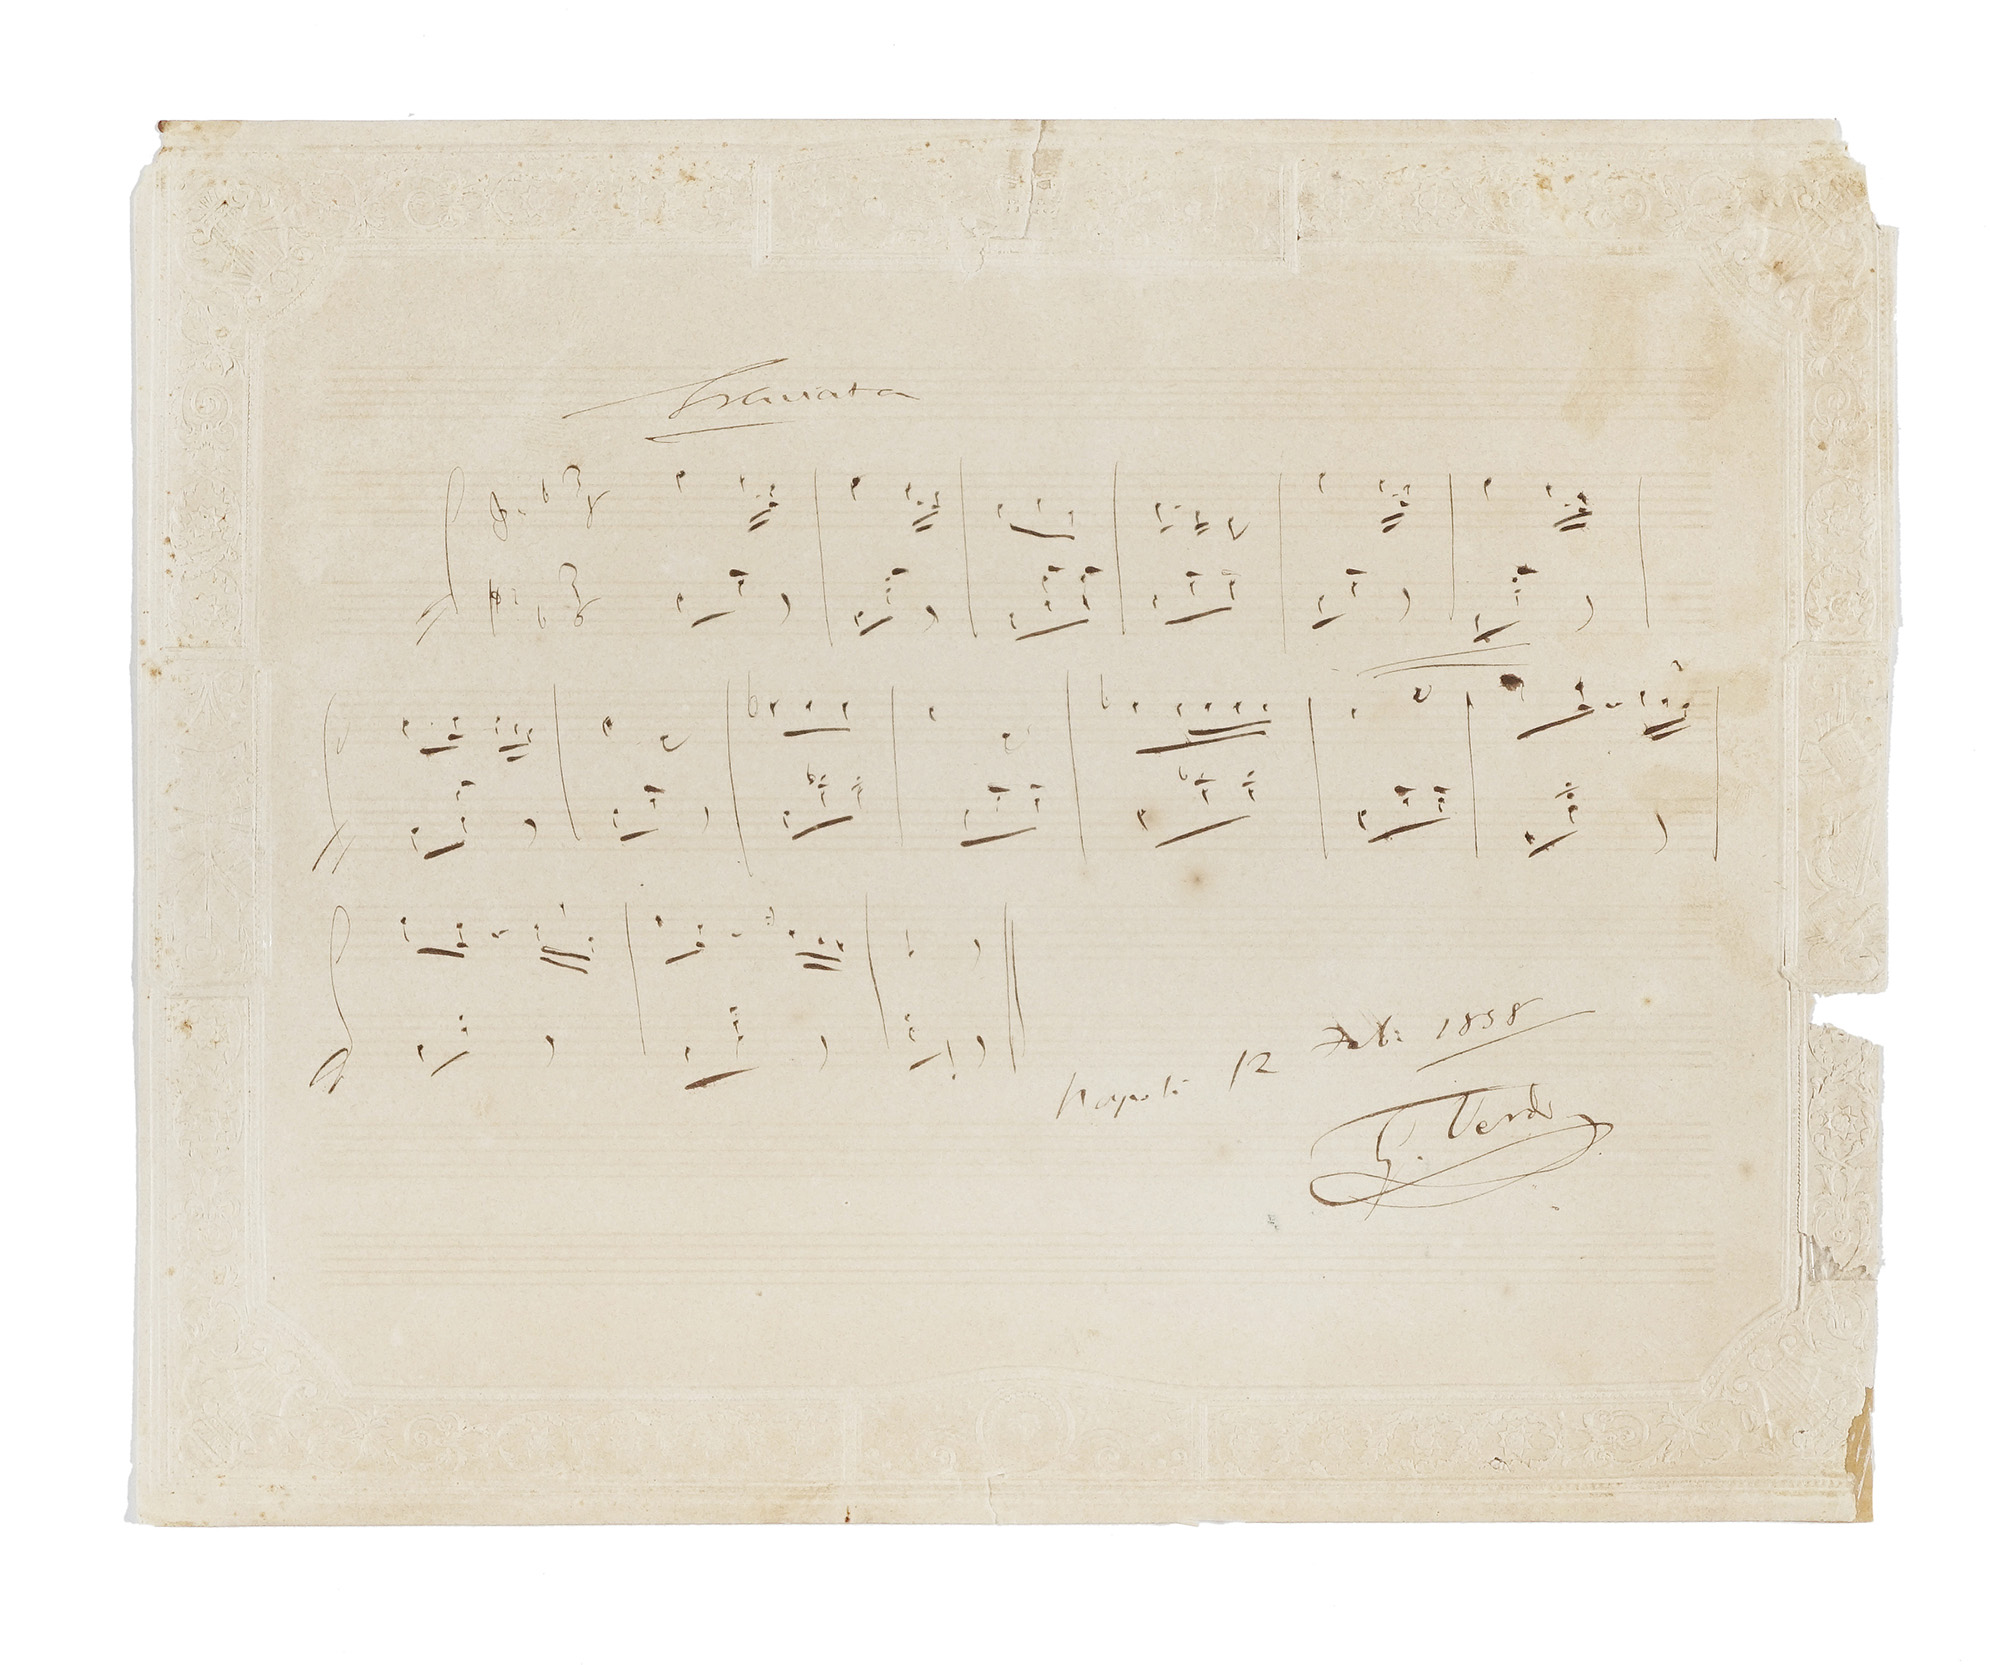 Traviata
Napoli 12 Feb: 1858
G. Verdi